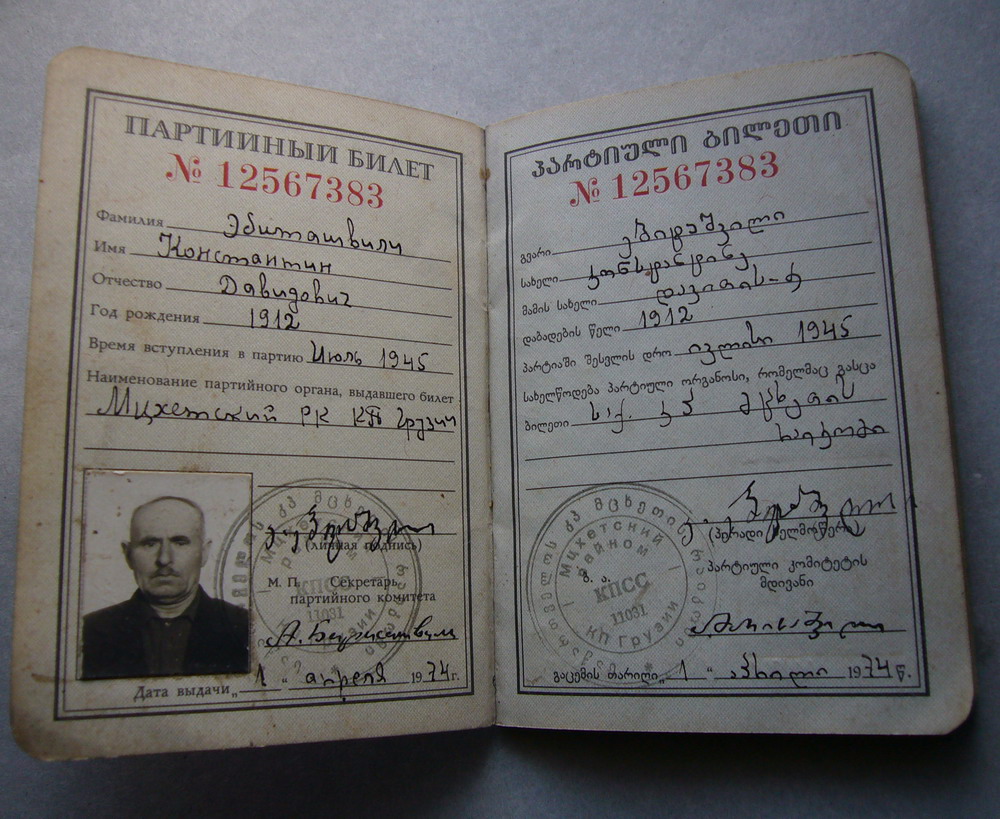 ПАРТИЙНЫЙ БИЛЕТ
№ 12567383
Фамилия Эбиташвили
Имя Константин
Отчество Давидович
Год рождения 1912
Время вступления в партию Июль 1945
Наименование партийного органа, выдавшего билет
Мцхетский РК КП Грузии
(личная подпись)
М. П. Секретарь
партийного комитета
Дата выдачи „ 1 “ апреля 1974 г.
Мцхетский
райком
КПСС
11031
КП Грузии
ᲞᲐᲠᲢᲘᲣᲚᲘ ᲑᲘᲚᲔᲗᲘ
№ 12567383
გვარი ებიტაშვილი
სახელი კონსტანტინე
მამის სახელი დავითის-ძე
დაბადების წელი 1912
პარტიაში შესვლის დრო ივლისი 1945
სახელწოდება პარტიული ორგანოსი, რომელმაც გასცა
ბილეთი საქ. კპ მცხეთის
რაიკომი
(პირადი ხელმოწერა)
ბ. ა. პარტიული კომიტეტის
მდივანი
გაცემის თარიღი „ 1 “ აპრილი 1974 წ.
Мцхетский
райком
КПСС
11031
КП Грузии